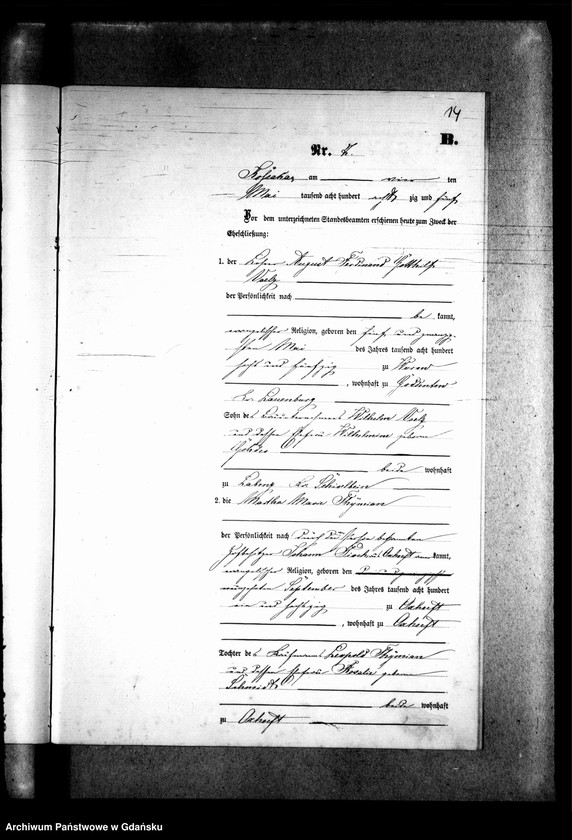 14
B.
Nr. 7.
am vier ten
Mai tausend acht hundert acht zig und fünf
Vor dem unterzeichneten Standesbeamten erschienen heute zum Zweck der
Eheschließung:
1. der Lehrer August Ferdinand Gotthilf
der Persönlichkeit nach
be kannt,
evangelischer Religion, geboren den fünf und zwanzig-
sten Mai des Jahres tausend acht hundert
sechs und fünfzig zu
, wohnhaft zu Goddentow
Kr. Lauenburg
Sohn des Wilhelm
und dessen Ehefrau Wilhelmine geborene
beide wohnhaft
zu Labenz Kr. Schivelbein
2. die Martha Maria Thymian
der Persönlichkeit nach durch den
Hofbesitzer Johann aus Oxhöft kannt,
evangelischer Religion, geboren den
September des Jahres tausend acht hundert
ein und sechszig zu Oxhöft
, wohnhaft zu Oxhöft
Tochter des Kaufmanns Leopold Thymian
und dessen Ehefrau Rosalie geborene
Schmidt
beide wohnhaft
zu Oxhöft
Archiwum Państwowe w Gdańsku